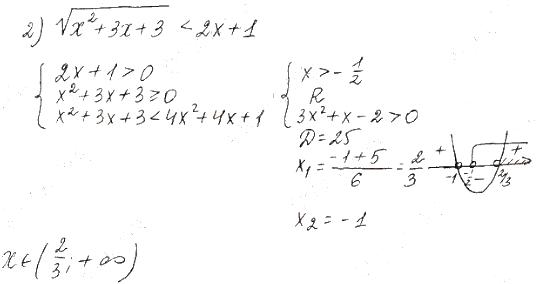 2) √(x²+3x+3) < 2x+1
{ 2x+1>0
x²+3x+3≥0
x²+3x+3<4x²+4x+1
{ x>-1/2
R
3x²+x-2>0
D=25
x₁=(-1+5)/6=2/3
+ -1 -1/2 - 2/3 +
x₂=-1
x∈(2/3; +∞)